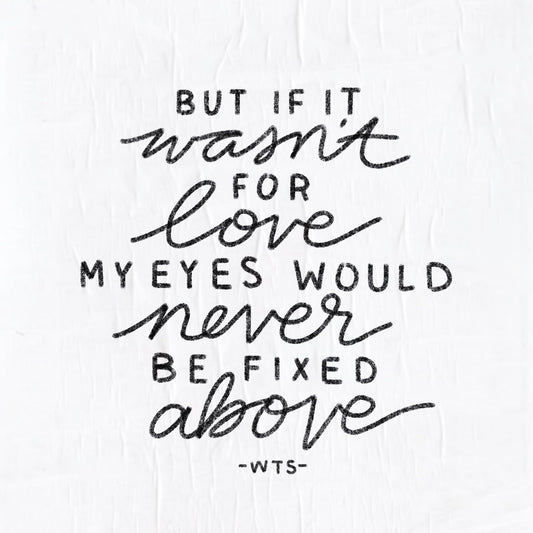 BUT IF IT
wasn't
FOR
love
MY EYES WOULD
never
BE FIXED
above
-WTS-